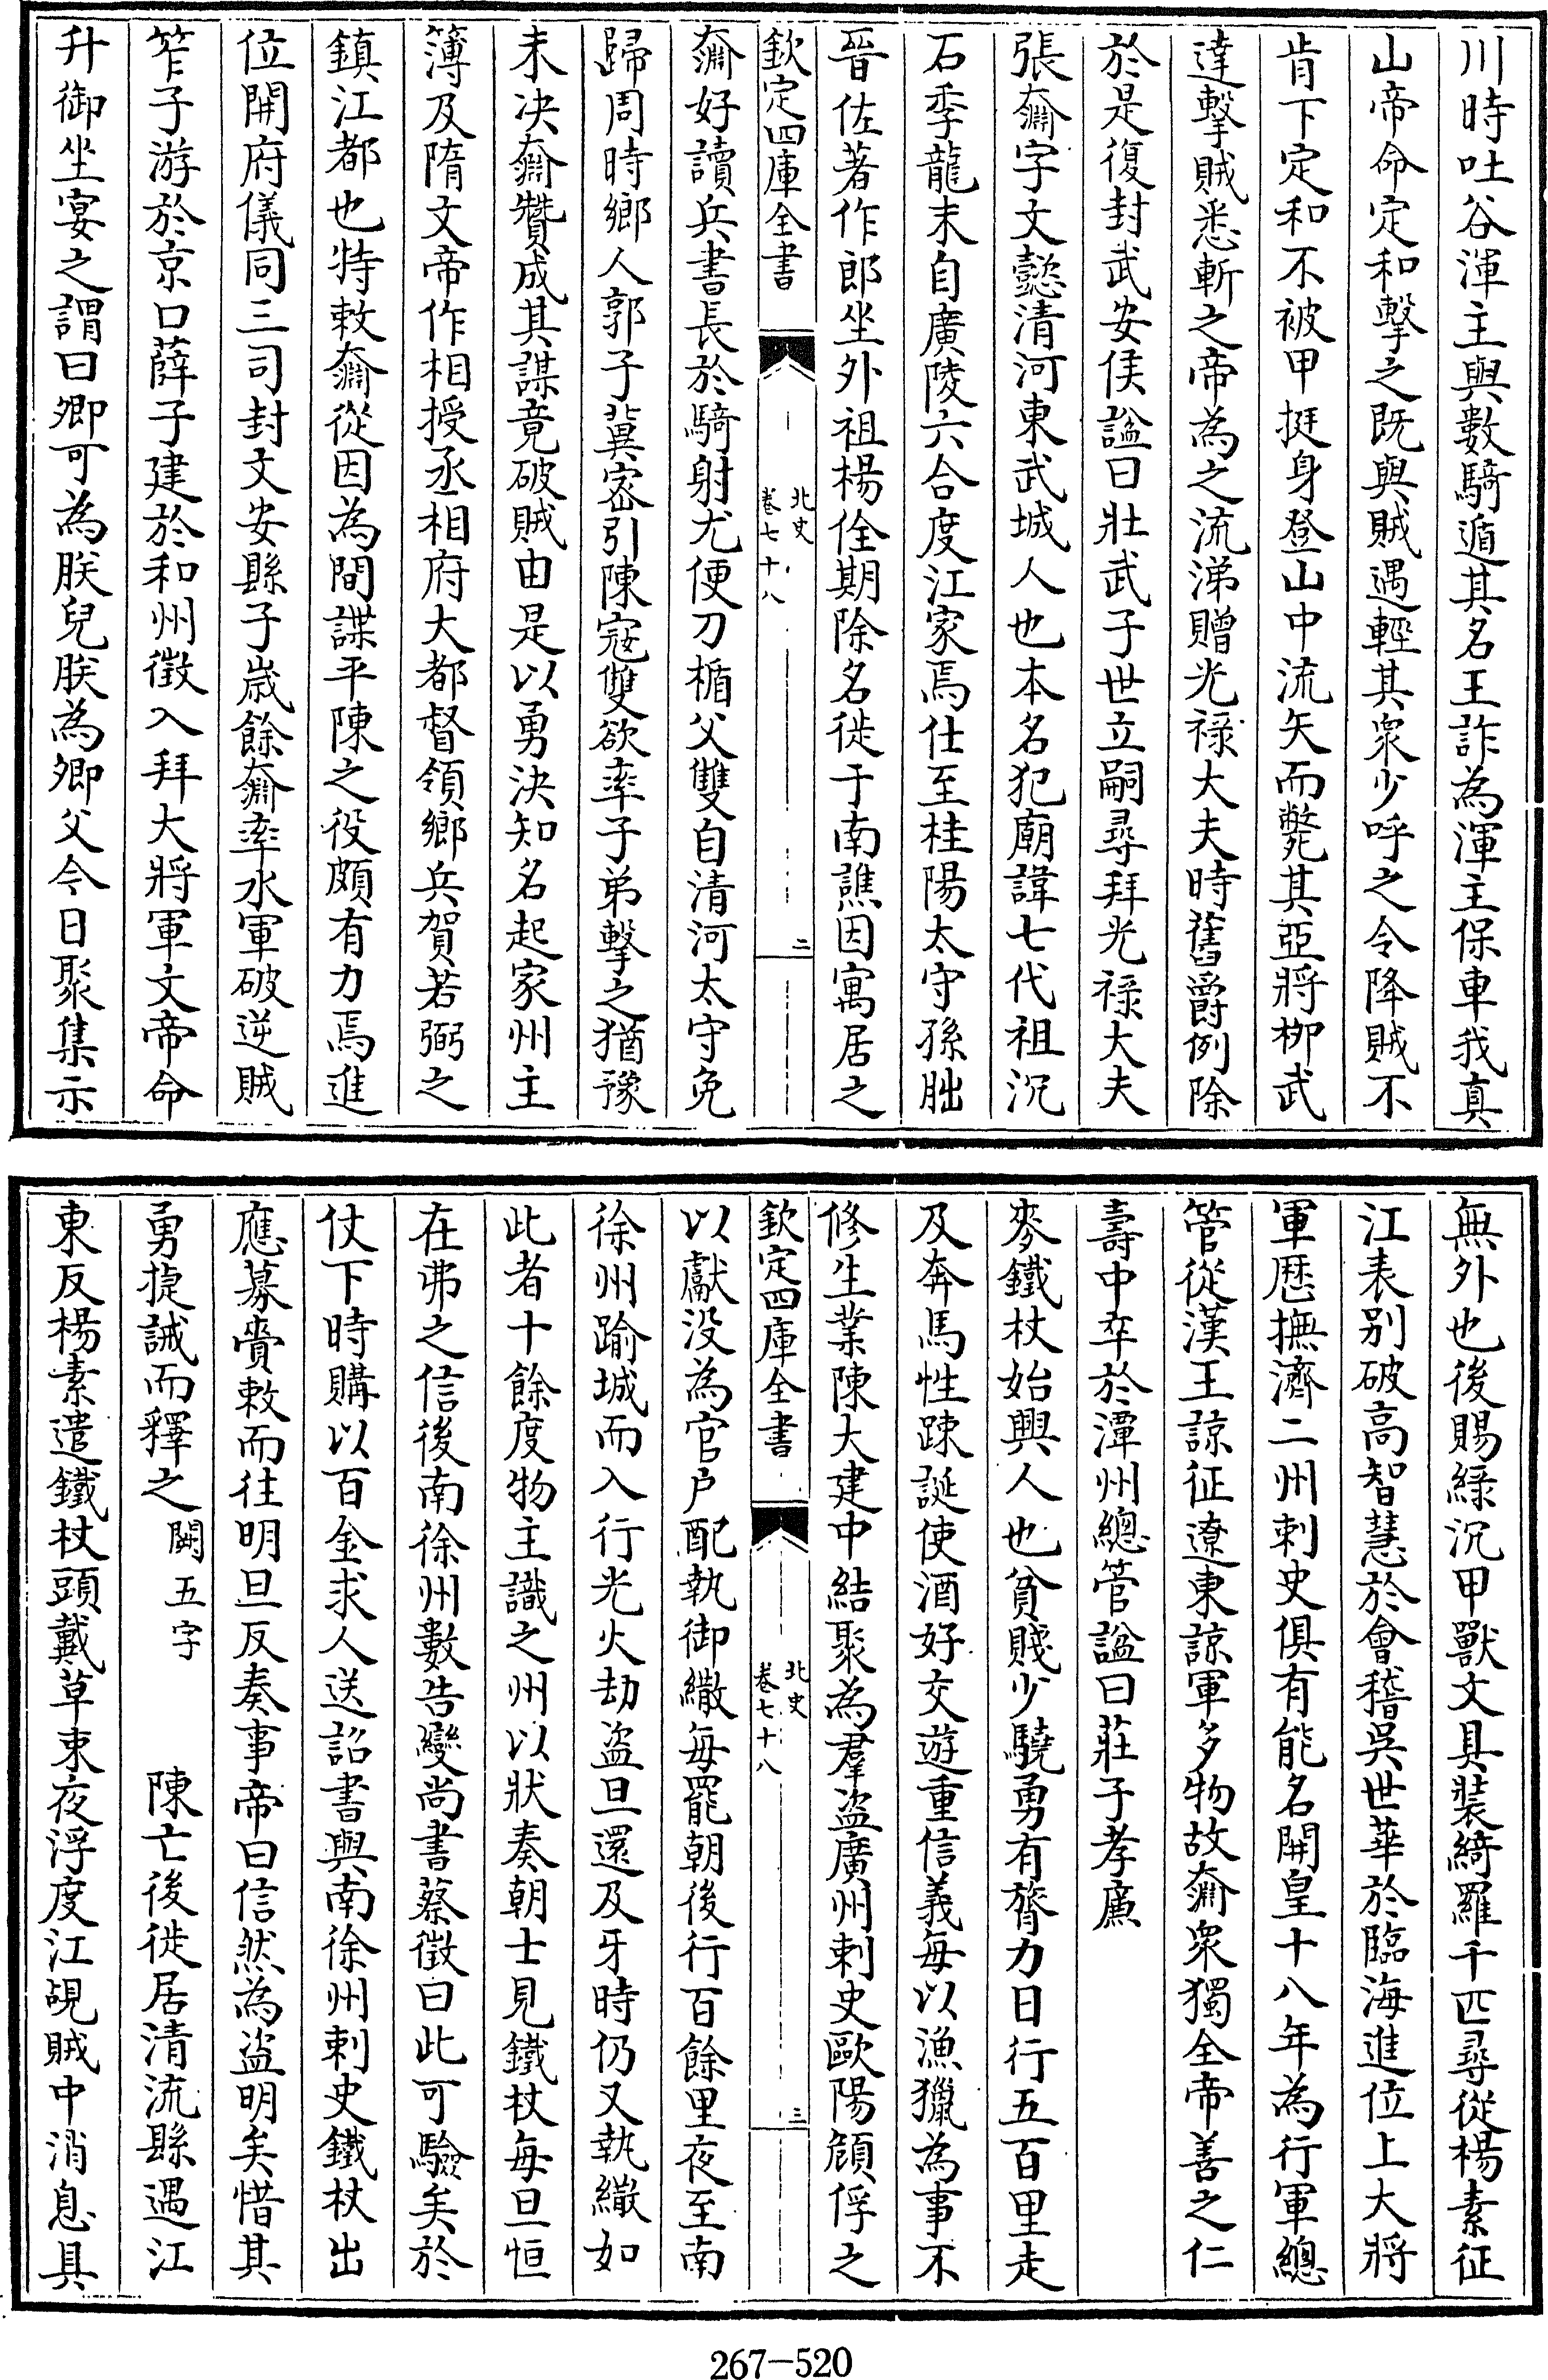 川時吐谷渾主與數騎遁其名王詐為渾主保車我真
山帝命定和擊之既與賊遇輕其衆少呼之令降賊不
肯下定和不被甲挺身登山中流矢而斃其亞將栁武
達擊賊悉斬之帝為之流涕贈光祿大夫時舊爵例除
於是復封武安侯謚曰壯武子世立嗣尋拜光祿大夫
張奫字文懿清河東武城人也本名犯廟諱七代祖沉
石季龍末自廣陵六合度江家焉仕至桂陽太守孫朏
晉佐著作郎坐外祖楊佺期除名徙于南譙因寓居之
欽定四庫全書
北史
卷七十八
二
奫好讀兵書長於騎射尤便刀楯父雙自清河太守免
歸周時鄉人郭子冀密引陳寇雙欲率子弟擊之猶豫
未決奫贊成其謀竟破賊由是以勇決知名起家州主
簿及隋文帝作相授丞相府大都督領鄉兵賀若弼之
鎮江都也特敕奫從因為間諜平陳之役頗有力焉進
位開府儀同三司封文安縣子歲餘奫率水軍破逆賊
笮子游於京口薛子建於和州徵入拜大將軍文帝命
升御坐宴之謂曰卿可為朕兒朕為卿父今日聚集示
無外也後賜綠沉甲獸文具裝綺羅千匹尋從楊素征
江表别破高智慧於會稽吳世華於臨海進位上大將
軍歴撫濟二州刺史俱有能名開皇十八年為行軍總
管從漢王諒征遼東諒軍多物故奫衆獨全帝善之仁
壽中卒於潭州總管謚曰莊子孝廉
麥鐵杖始興人也貧賤少驍勇有膂力日行五百里走
及奔馬性踈誕使酒好交遊重信義每以漁獵為事不
修生業陳大建中結聚為羣盜廣州刺史歐陽頠俘之
欽定四庫全書
北史
卷七十八
三
以獻没為官户配執御繖每罷朝後行百餘里夜至南
徐州踰城而入行光火劫盜旦還及牙時仍又執繖如
此者十餘度物主識之州以狀奏朝士見鐵杖每旦恒
在弗之信後南徐州數告變尚書蔡徵曰此可驗矣於
仗下時購以百金求人送詔書與南徐州刺史鐵杖出
應募賫敕而往明旦反奏事帝曰信然為盜明矣惜其
勇捷誡而釋之闕五字陳亡後徙居清流縣遇江
東反楊素遣鐵杖頭戴草束夜浮度江覘賊中消息具
267—520